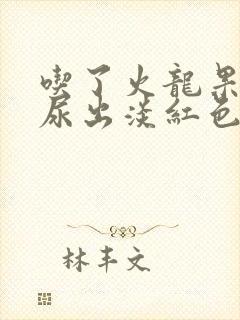 喫了火龍果
尿出淡紅色
林丰文